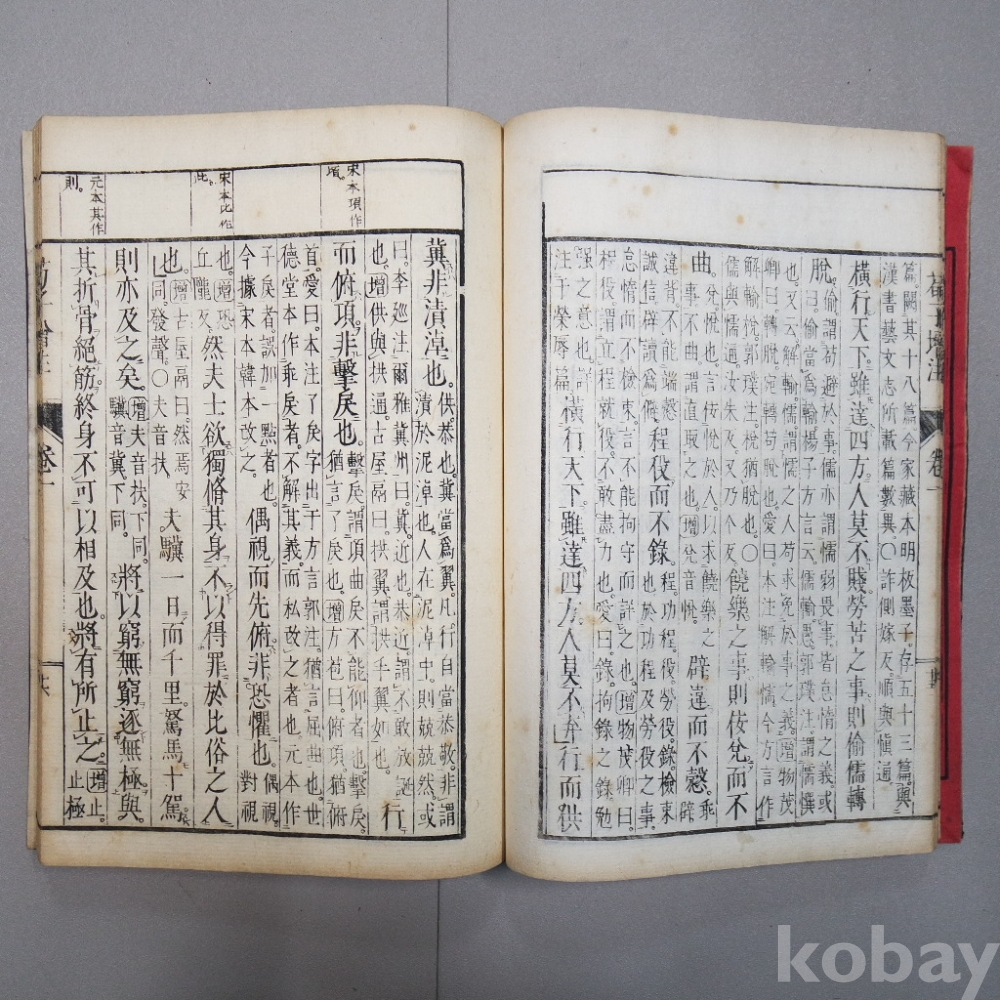 荀子增注 卷一
篇。闕其十八篇。今家藏本明板墨子。存五十三篇。與
漢書藝文志所載篇數異。○詐側嫁反。順與愼通
橫行天下。雖達四方。人莫不賤。勞苦之事則偷儒轉
脫。偷謂苟避於事。儒亦謂懦弱畏事。皆怠惰之義。或
曰。偷當爲輸。楊子方言云。儒輸愚。郭璞注。謂懦撰
也。又云。解輸。儒謂懦之人苟求免於事之義。增物茂
卿曰。宛轉苟脫也。愛曰。本注解輸儒。今方言作
解輸。梲也。郭璞注曰。梲猶脫也。○
儒與懦通。汝朱反。又乃亂反
饒樂之事則佞兌而不
曲。兌。悅也。言佞悅於人。以求饒樂之
事。不曲。謂直取之也。增兌音悅。
辟違而不愨。乖
違背。不能端愨
誠信。辟讀爲僻。
程役而不錄。程功程。役勞役。錄檢束
也。於功程及勞役之事。
怠惰而不檢束。言不能拘守而詳之也。增物茂卿曰。
程役。言就程役。不敢盡力也。愛曰。錄。拘錄之錄。勉
強之意。說見
注于榮辱篇
橫行天下。雖達四方。人莫不弃。行而供
冀。非漬淖也。供。恭也。冀當爲翼。凡行自當恭敬。非謂
漬於泥淖也。人在泥淖中。則兢兢然。或
曰。李巡注爾雅冀州曰。冀。近也。恭近。謂不敢放誕
也。增供與拱通。古屋鬲曰。拱翼。謂拱手翼如也。
行
而俯項。非擊戾也。擊戾。謂項曲戾不能仰者也。擊戾。
猶言了戾也。增方苞曰。俯項。猶俯
首。愛曰。本注了戾字出于方言郭注。猶言屈曲也。世
德堂本作乖戾者。不解其義。而私改之者也。元本作
子戾者。誤加一點者也。
今據宋本韓本改之。
偶視而先俯。非恐懼也。偶視。對視
也。增恐
丘隴反
然夫士欲獨脩其身。不以得罪於比俗之人
也。增古屋鬲曰。然焉安
同。發聲。○夫音扶
夫驥一日而千里。駑馬十駕。
則亦及之矣。增夫音扶。下同。
驥音冀。下同。
將以窮無窮。逐無極與。
其折骨絕筋。終身不可以相及也。將有所止之。增止。
止極
宋本項作
頊。
宋本比作
此。
元本其作
則。
荀子增注 卷一
kobay